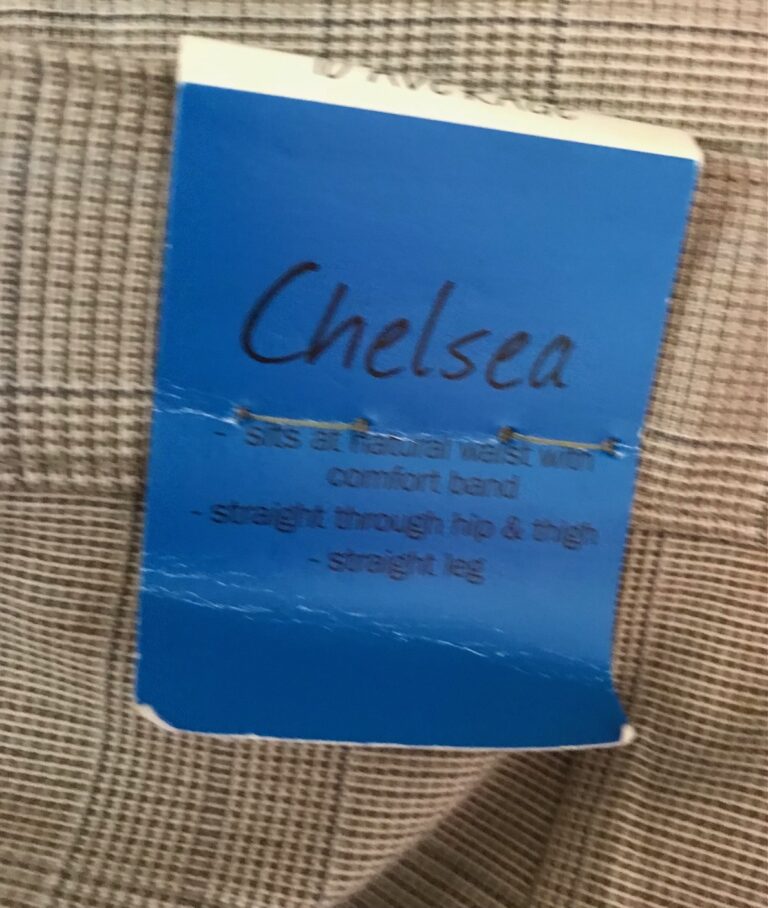 AVERAGE
Chelsea
- sits at natural waist with
comfort band
- straight through hip & thigh
- straight leg